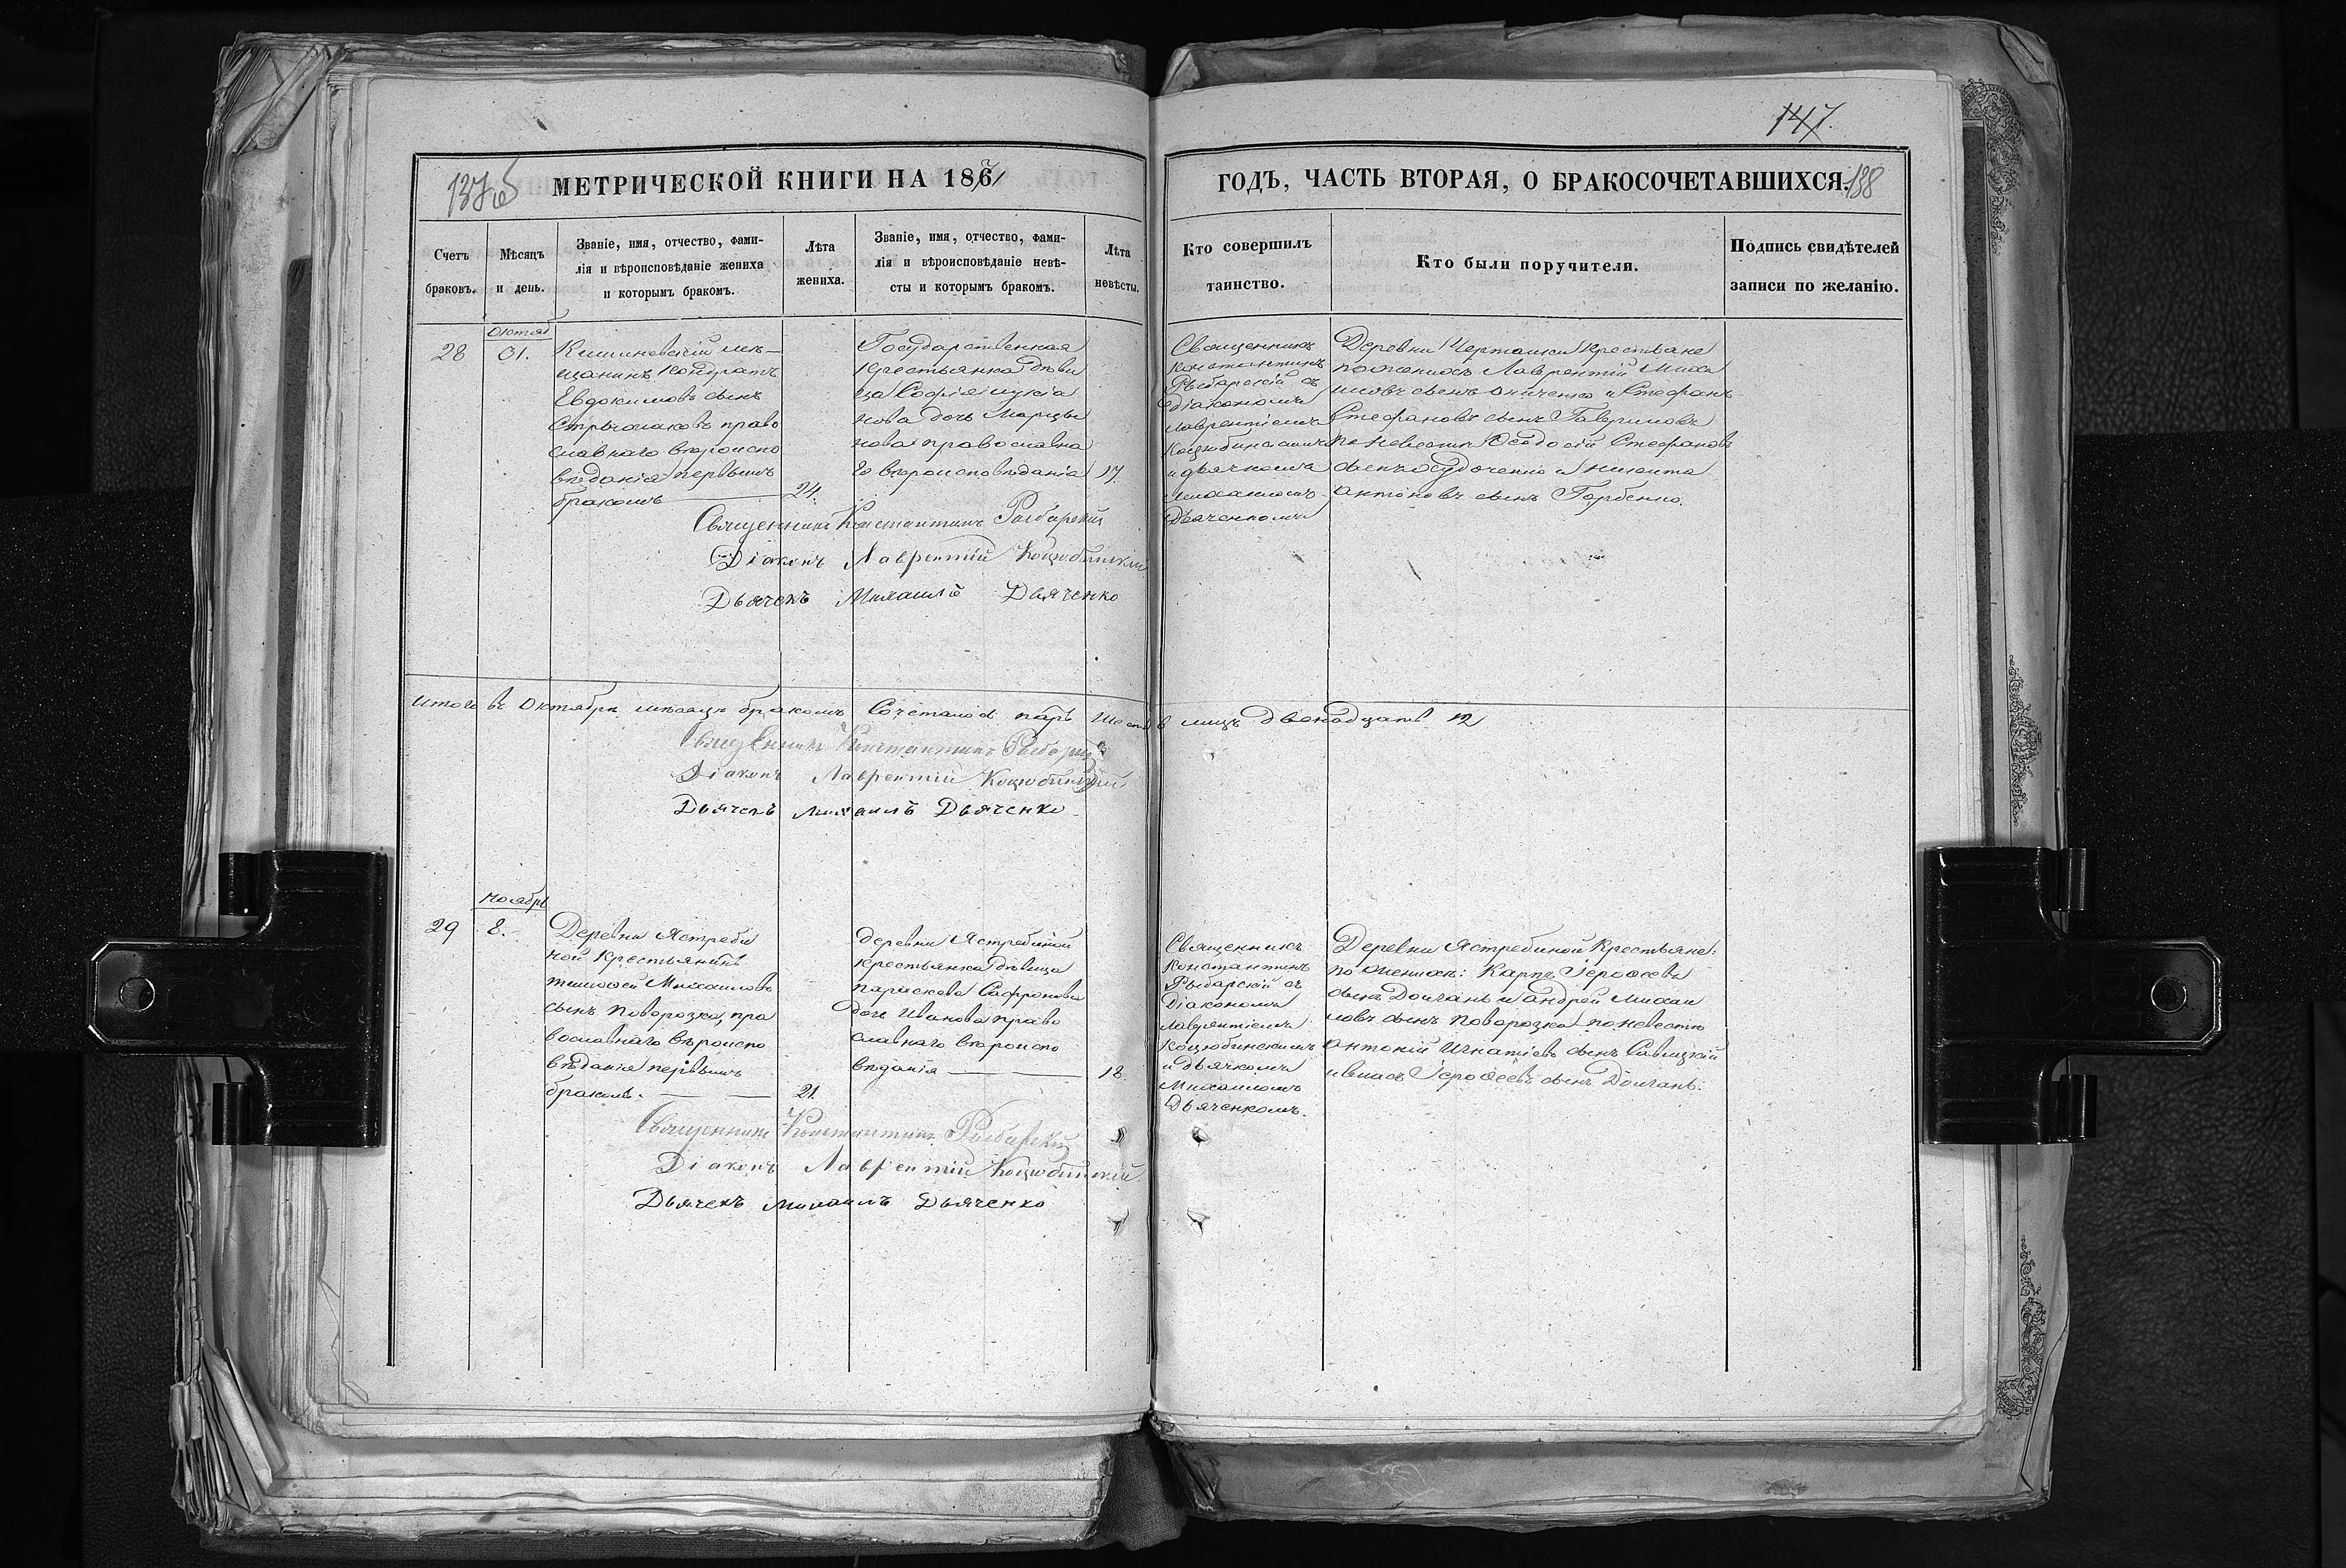 147.
137об
МЕТРИЧЕСКОЙ КНИГИ НА 1861
ГОДЪ, ЧАСТЬ ВТОРАЯ, О БРАКОСОЧЕТАВШИХСЯ.
138
Счетъ
браковъ.
Мѣсяцъ
и день.
Званіе, имя, отчество, фами-
лія и вѣроисповѣданіе жениха
и которымъ бракомъ.
Лѣта
жениха.
Званіе, имя, отчество, фами-
лія и вѣроисповѣданіе невѣ-
сты и которымъ бракомъ.
Лѣта
невѣсты.
Кто совершилъ
таинство.
Кто были поручители.
Подпись свидѣтелей
записи по желанію.
Октяб
28
31.
Кишиневскій мѣ-
щанинъ Кондратъ
Евдокимовъ сынъ
право
славнаго вѣроиспо
вѣданія первымъ
бракомъ
24.
Государственная
крестьянка дѣви
ца Софія
нова дочь
нова православна
го вѣроисповѣданія
17.
Священникъ
Константинъ
Рыбарскій съ
діакономъ
Лаврентіемъ
Коцюбинскимъ
и дьячкомъ
Михаиломъ
Дьяченкомъ
Деревни крестьяне
по женихѣ Лаврентій Миха
иловъ сынъ и Стефанъ
Стефановъ сынъ Гавриловъ
по невестѣ Ѳеодосій Стефановъ
сынъ и Никита
Антоновъ сынъ Горбенко.
Священникъ Константинъ Рыбарскій
Діаконъ Лаврентій Коцюбинскій
Дьячекъ Михаилъ Дьяченко
Итого въ Октябрѣ мѣсяцѣ бракомъ Сочеталось паръ Шесть 6 лицъ двенадцать 12
Священникъ Константинъ Рыбарскій
Діаконъ Лаврентій Коцюбинскій
Дьячекъ Михаилъ Дьяченко
Ноябрь
29
8.
Деревни Ястреби
ной Крестьянинъ
Тимоѳей Михаиловъ
сынъ Поворозка, пра
вославнаго вѣроиспо
вѣданія первымъ
бракомъ.
21.
Деревни Ястребиной
крестьянка дѣвица
Параскева Сафронова
дочь Иванова право
славнаго вѣроиспо
вѣданія
18.
Священникъ
Константинъ
Рыбарскій съ
Діакономъ
Лаврентіемъ
Коцюбинскимъ
и дьячкомъ
Михаиломъ
Дьяченкомъ.
Деревни Ястребиной Крестьяне:
по женихѣ: Карпъ Іероѳеевъ
сынъ Долганъ и Андрей Михаи
ловъ сынъ Поворозка по невестѣ
Антоній Игнатіевъ сынъ Савицкій
и Власъ Іероѳеевъ сынъ Долганъ.
Священникъ Константинъ Рыбарскій
Діаконъ Лаврентій Коцюбинскій.
Дьячекъ Михаилъ Дьяченко